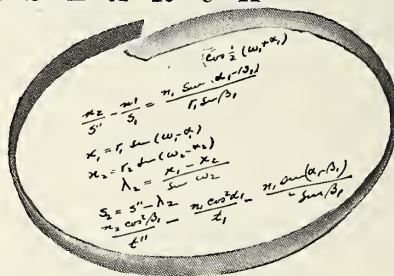 cos ½ (ω₁+α₁)
n₂/s″ - n₁/s₁ = n₁ sin (α₁-β₁)/r₁ sin β₁
x₁ = r₁ sin (ω₁-α₁)
x₂ = r₂ sin (ω₂-α₂)
λ₂ = x₁ - x₂/sin ω₂
s₂ = s″ - λ₂
n₂ cos²β₁/t″ - n₁ cos²α₁/t₁ = n₁ sin (α₁-β₁)/r₁ sin β₁